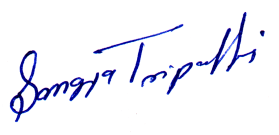 Sangya Tripathi